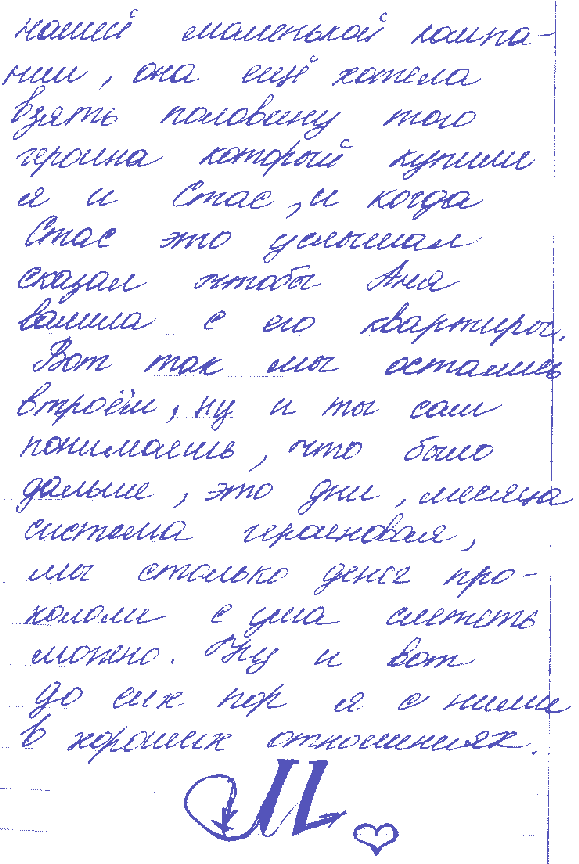 нашей маленькой компа-
нии, она ещё хотела
взять половину того
героина который купили
я и Стас, и когда
Стас это услышал
сказал чтобы Аня
валила с его квартиры.
Вот так мы остались
втроём, ну и ты сам
понимаешь, что было
дальше, это дни, месяца
система героиновая,
мы столько денег про-
кололи с ума слететь
можно. Ну и вот
до сих пор я с ними
в хороших отношениях.